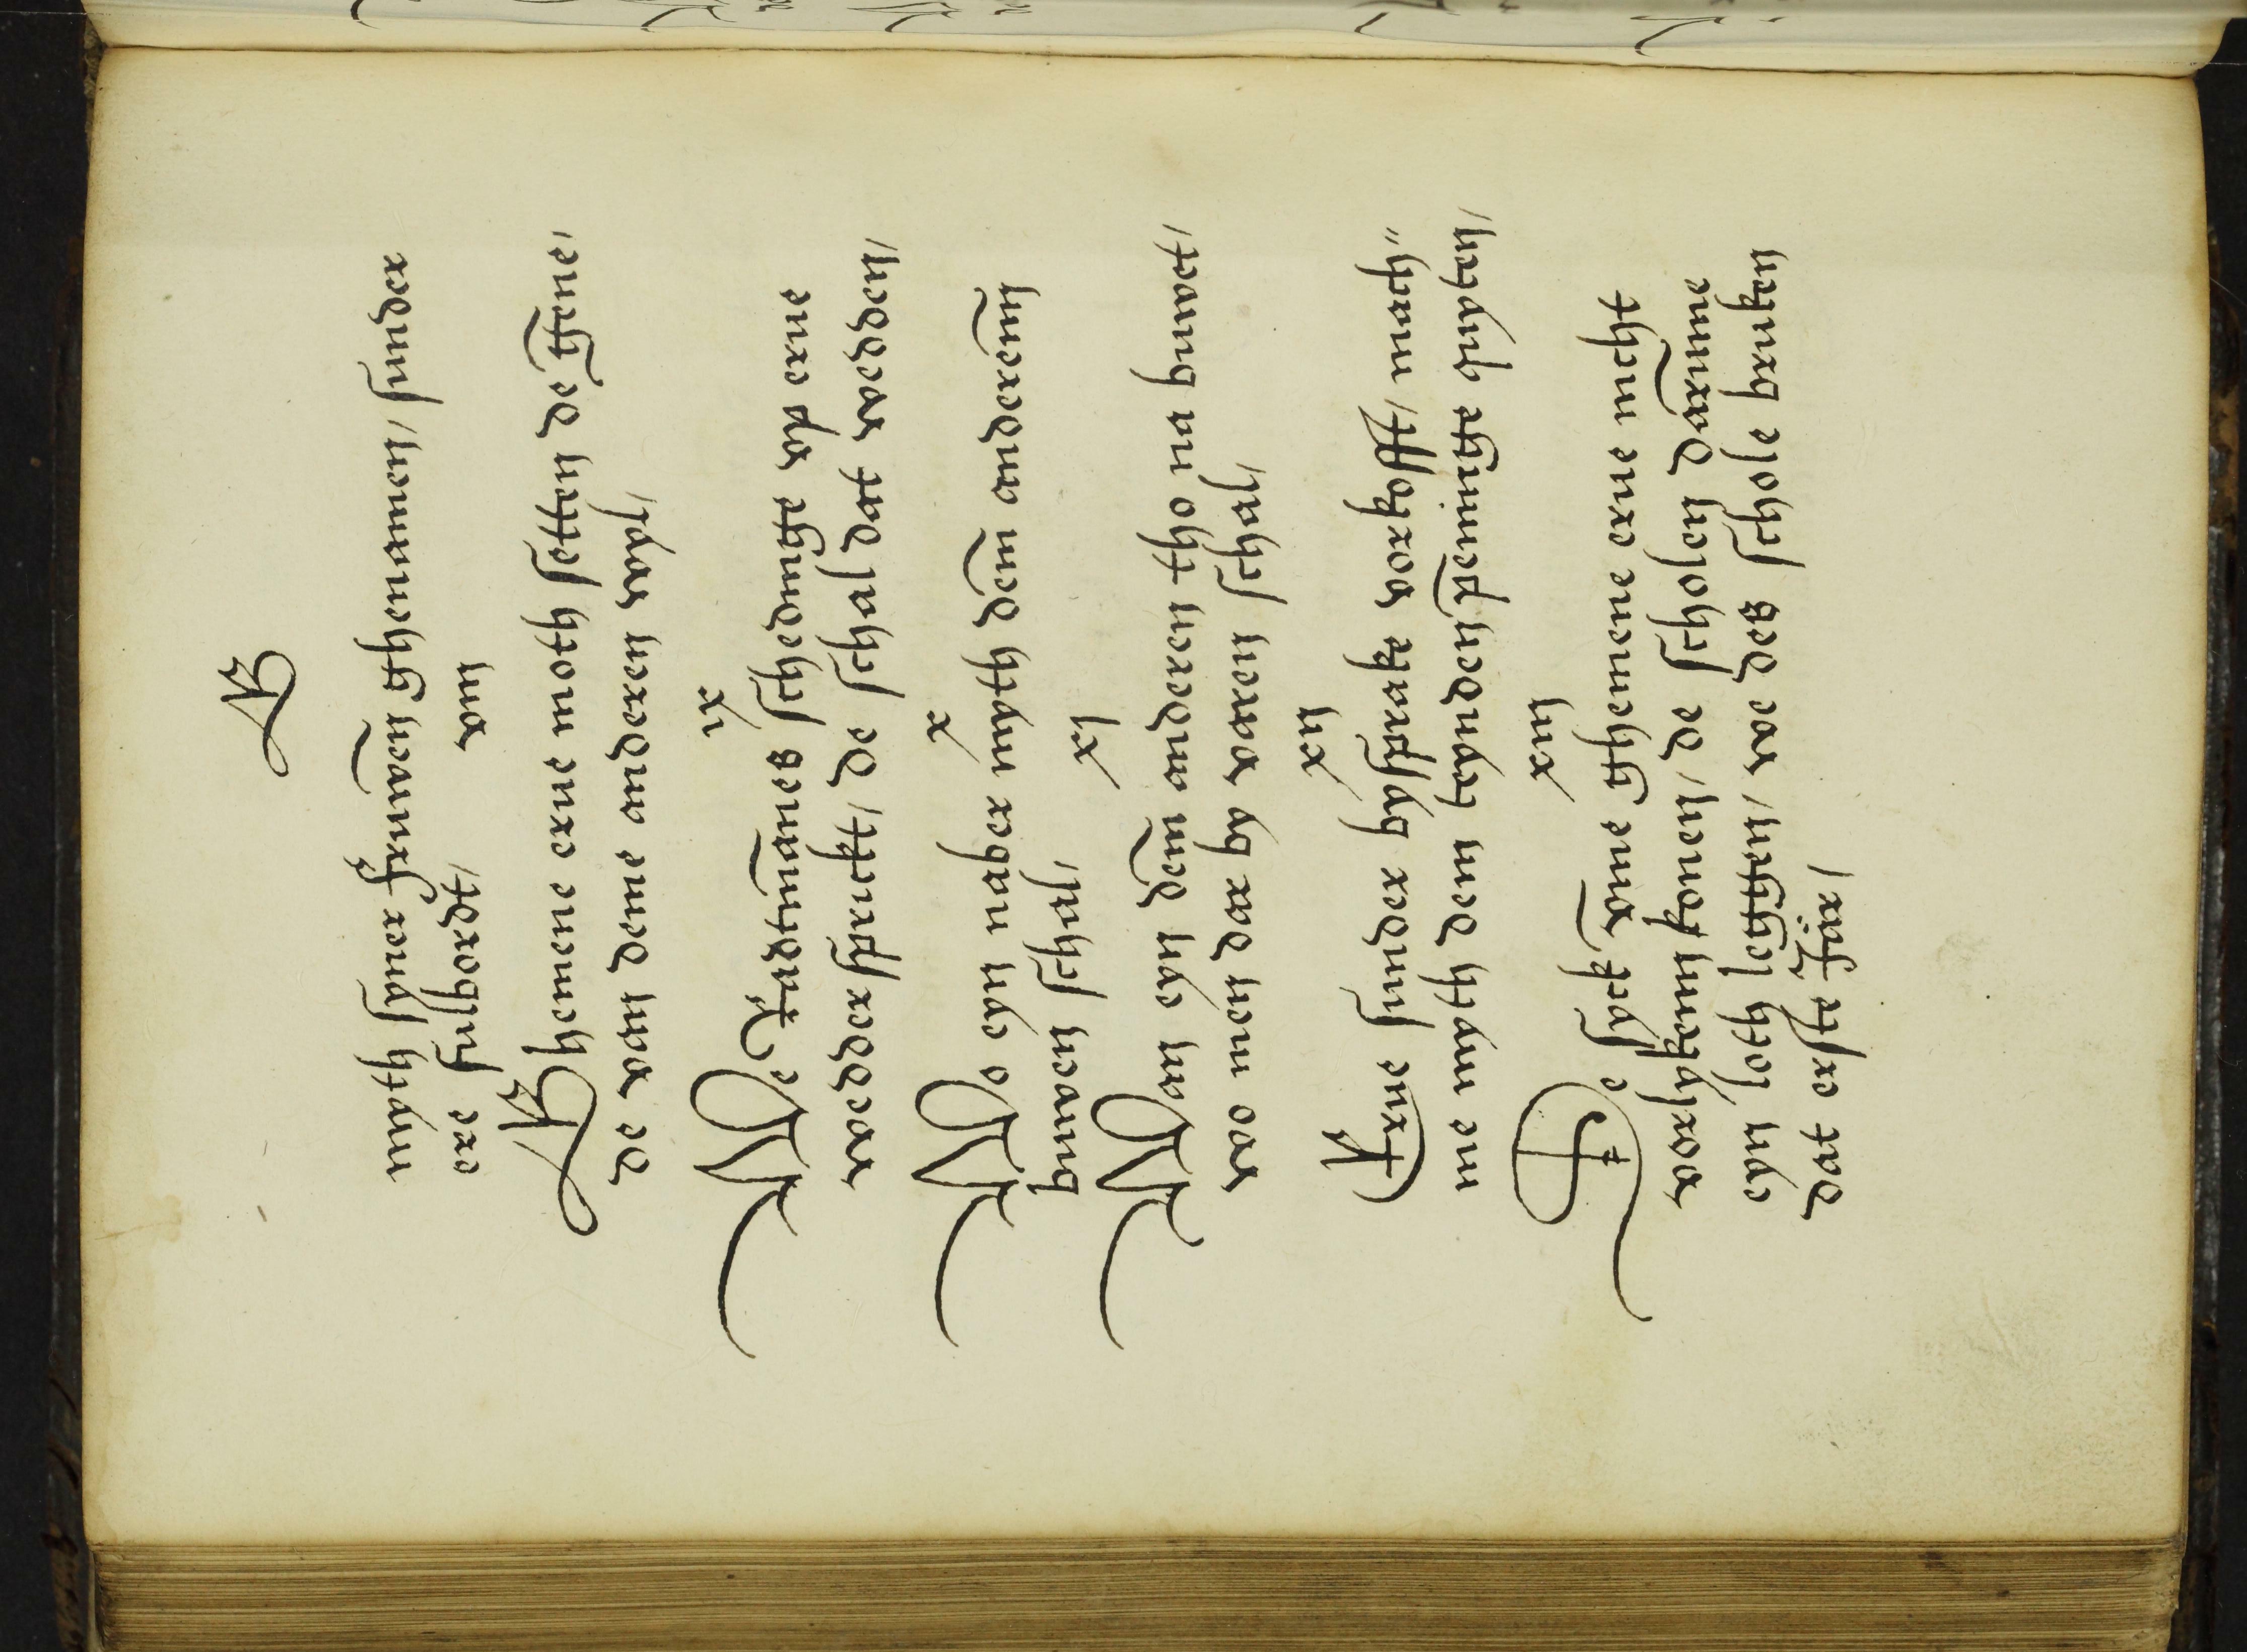 G
myth syner fruwen̄ ghenamen / sunder
ere fulbordt /
viij
Ghemene erue moth setten de ghene /
de van deme anderen wyl /
ix
We Radtmānes schedinge vp erue
wedder sprickt / de schal dat wedden /
x
Wo eyn naber myth dem̄ anderem̄
buwen schal /
xj
Wan eyn dem̄ anderen tho na buwet /
wo men dar by varen schal /
xij
Erue sunder bysprake vorkofft / mach
me myth dem teynden pen̄inge quyten /
xiij
De syck vm̄me ghemene erue nicht
vorlykenn konen / de scholen darum̄me
eyn loth leggen / we des schole bruken
dat erste Jar /